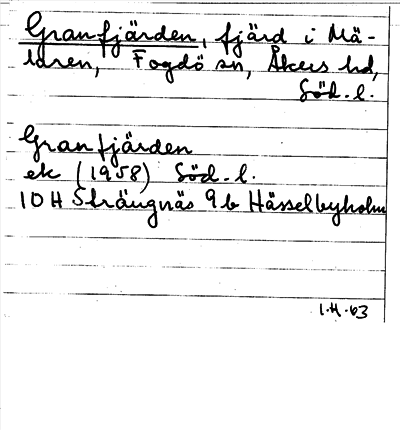 Granfjärden, fjärd i Mä-
laren, Fogdö sn, Åkers hd,
Söd. l.
Granfjärden
ek (1958) Söd. l.
10 H Strängnäs 9 b Hässelbyholm
1.H.63